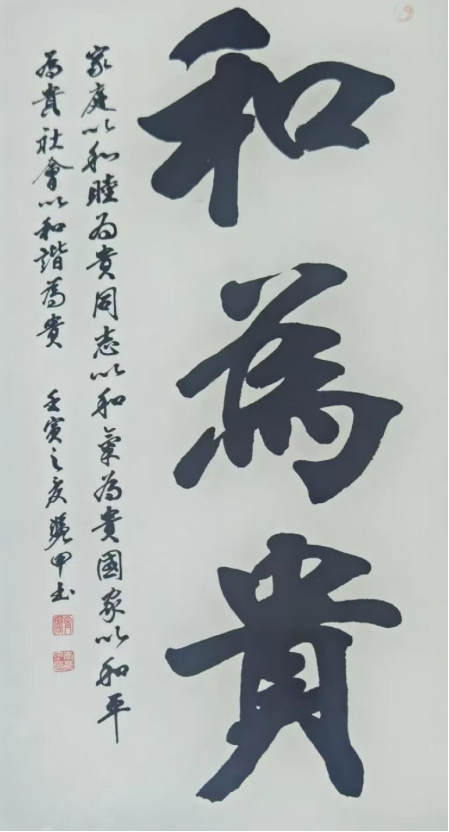 和為貴
家庭以和睦為貴同志以和氣為貴國家以和平
為貴社會以和諧為貴 壬寅之夏 甲書